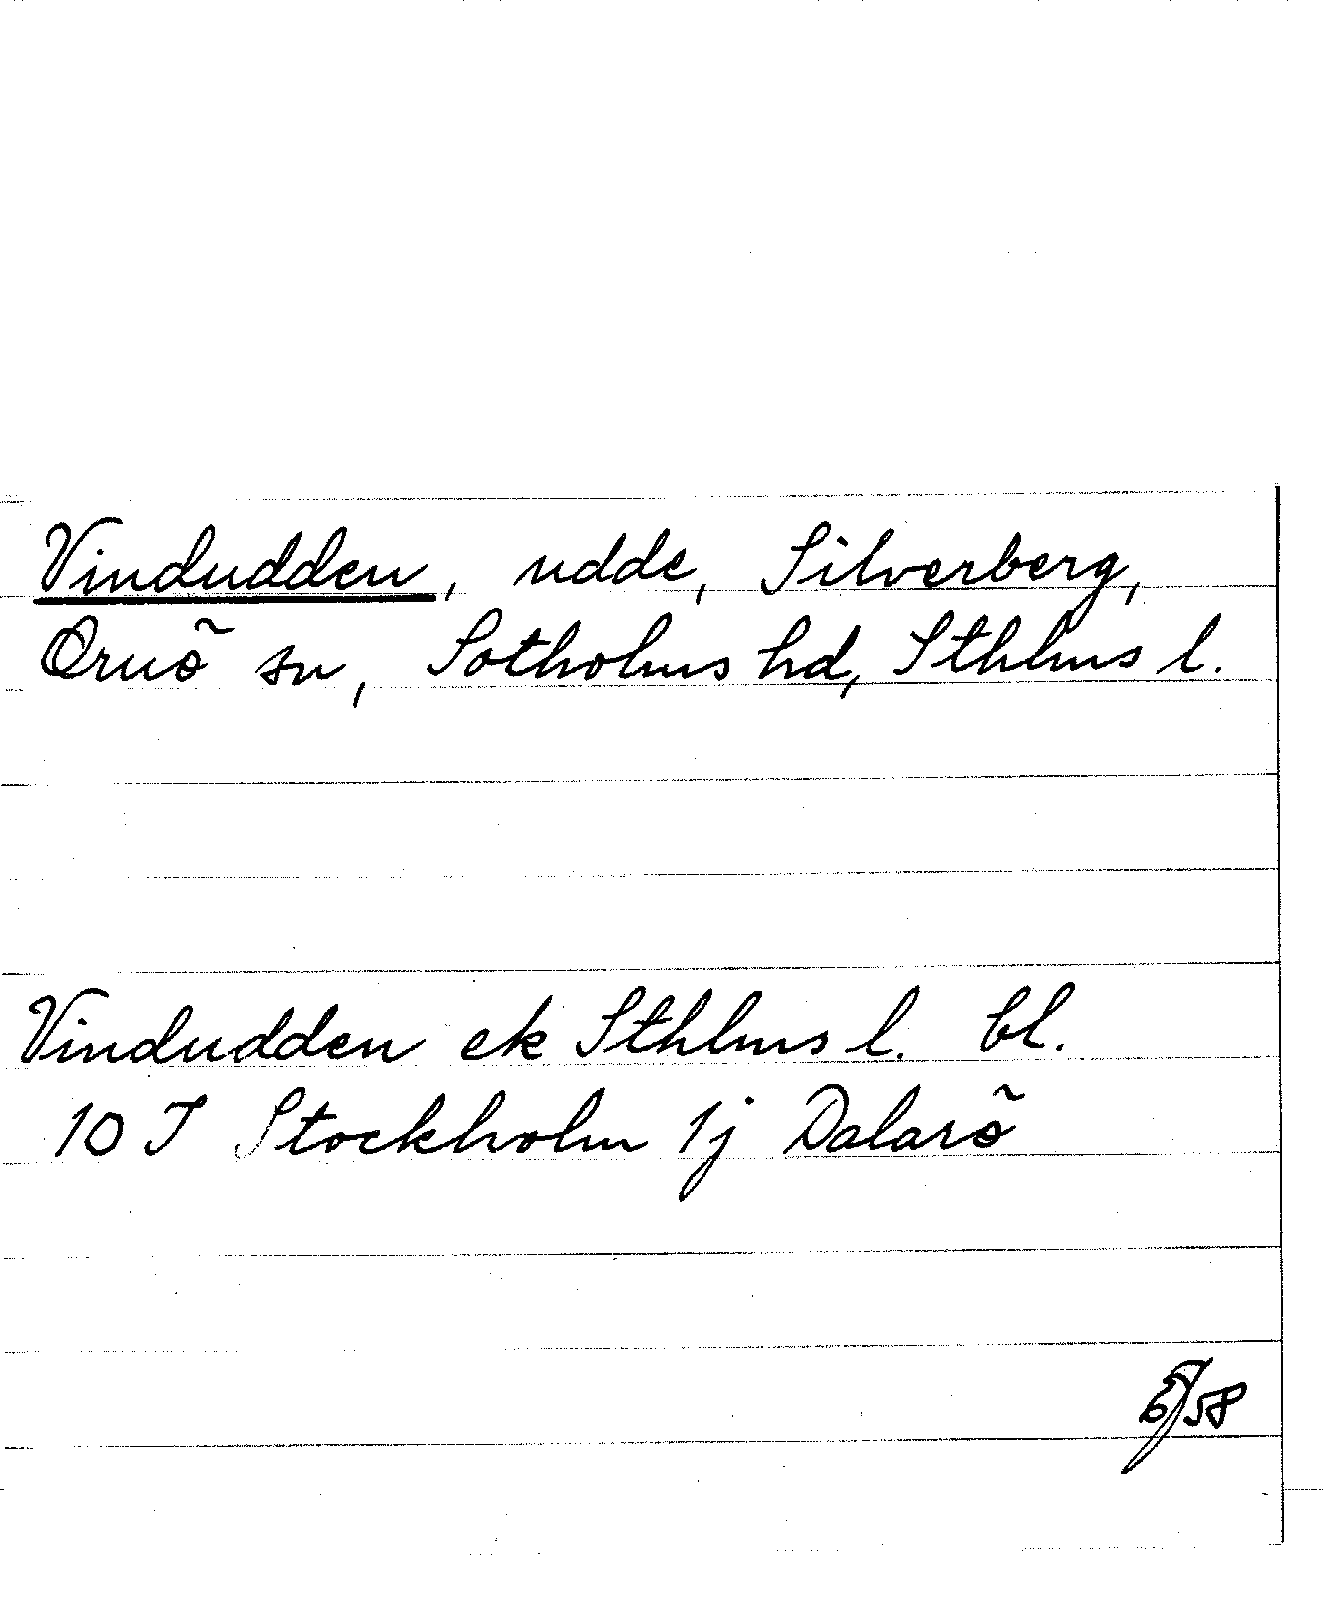 Vindudden, udde, Silverberg,
Ornö sn, Sotholms hd, Sthlms l.
Vindudden ek Sthlms l. bl.
10 I Stockholm 1j Dalarö